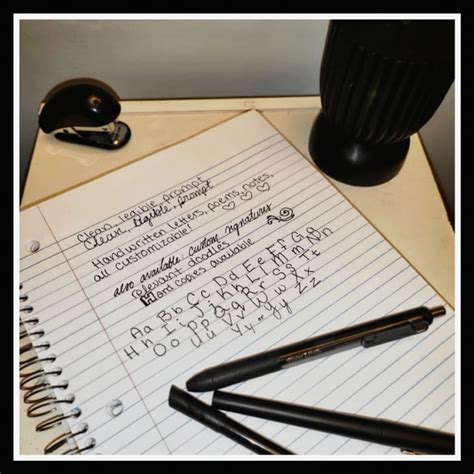 Clean, legible, prompt
Clean, legible, prompt
Handwritten letters, poems, notes,
all customizable!
also available: custom signatures
relevant doodles
Hard copies available
Aa Bb Cc Dd Ee Ff Gg
Hh Ii Jj Kk Ll Mm Nn
Oo Pp Qq Rr Ss Tt
Uu Vv Ww Xx
Yy Zz